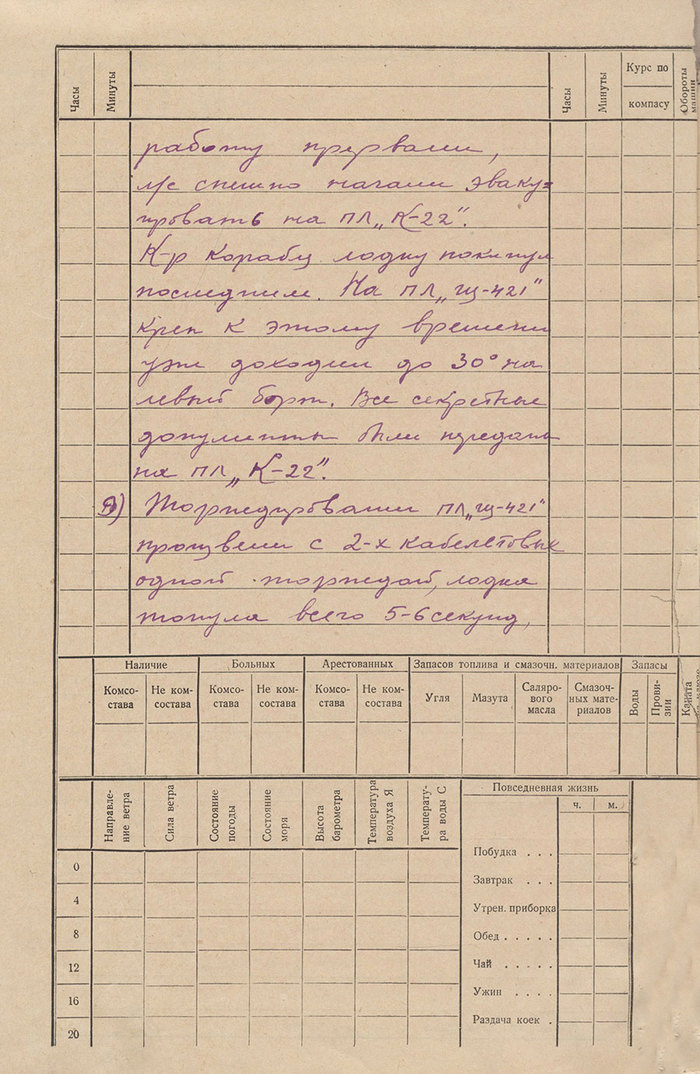 Часы Минуты Часы Минуты Курс по компасу Обороты машин
работу прервали,
л/с спешно начали эваку=
ировать на ПЛ „К-22".
К-р Корабл лодку покинул
последним. На ПЛ „Щ-421"
крен к этому времени
уже доходил до 30° на
левый борт. Все секретные
документы были переданы
на ПЛ „К-22".
9) Торпедировали ПЛ „Щ-421"
произвели с 2-х кабельтовых
одной торпедой, лодка
тонула всего 5-6 секунд,
Наличие Больных Арестованных Запасов топлива и смазочн. материалов Запасы
Комсо-става Не ком-состава Комсо-става Не ком-состава Комсо-става Не ком-состава Угля Мазута Саляро-вого масла Смазоч-ных мате-риалов Воды Прови-зии Каната
Направле-ние ветра Сила ветра Состояние погоды Состояние моря Высота барометра Температура воздуха Я Температу-ра воды С Повседневная жизнь
ч. м.
Побудка . . .
0
Завтрак . . .
4
Утрен. приборка
8
Обед . . . . .
12
Чай . . . . .
16
Ужин . . . .
Раздача коек .
20